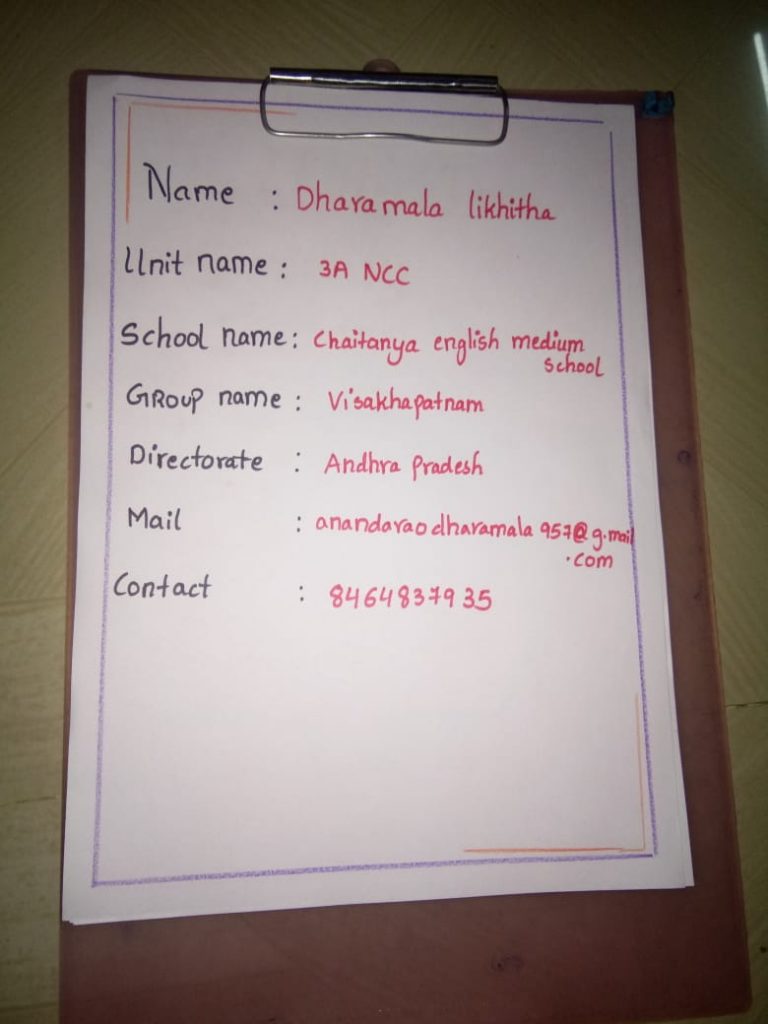 Name : Dharamala likhitha
Unit name : 3A NCC
School name : Chaitanya english medium
school
GRoup name : Visakhapatnam
Directorate : Andhra pradesh
Mail : anandarao dharamala 957@g.mail
.com
Contact : 8464837935